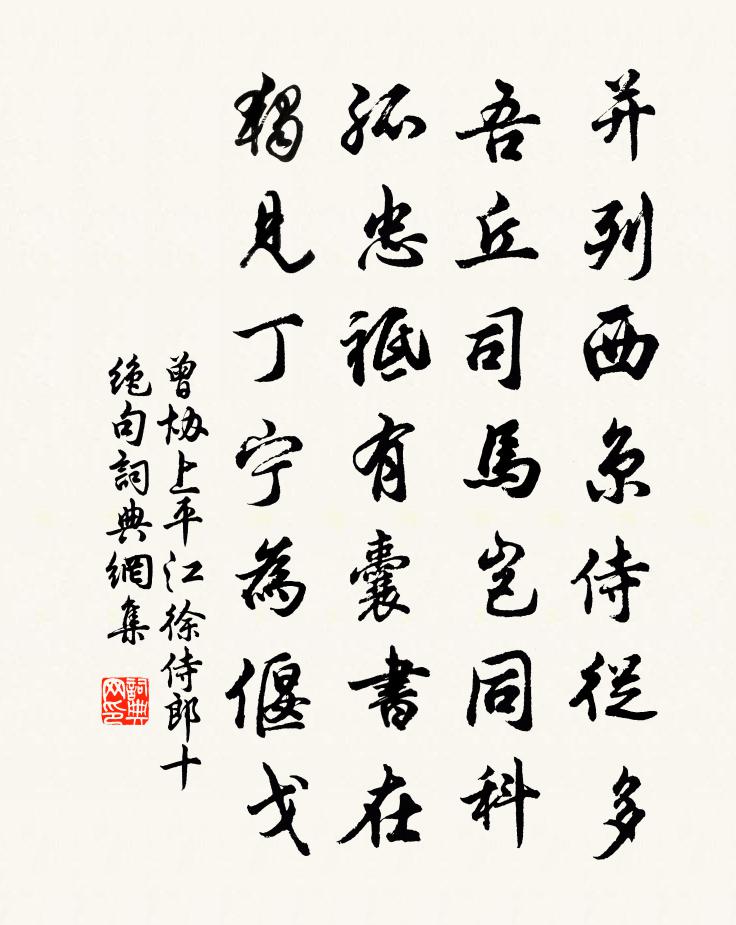 并列西京侍從多
吾丘司馬豈同科
孤忠祗有囊書在
獨見丁宁為偃戈
曾協上平江徐侍郎十
絕句詞典網集
詞典
网印